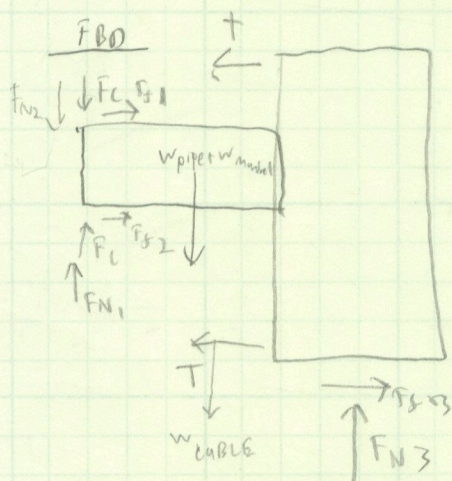 FBD
T
FN2
Fc Ff1
Wpipe+Wmandrel
Fc Ff2
FN1
T
WCABLE
FN3